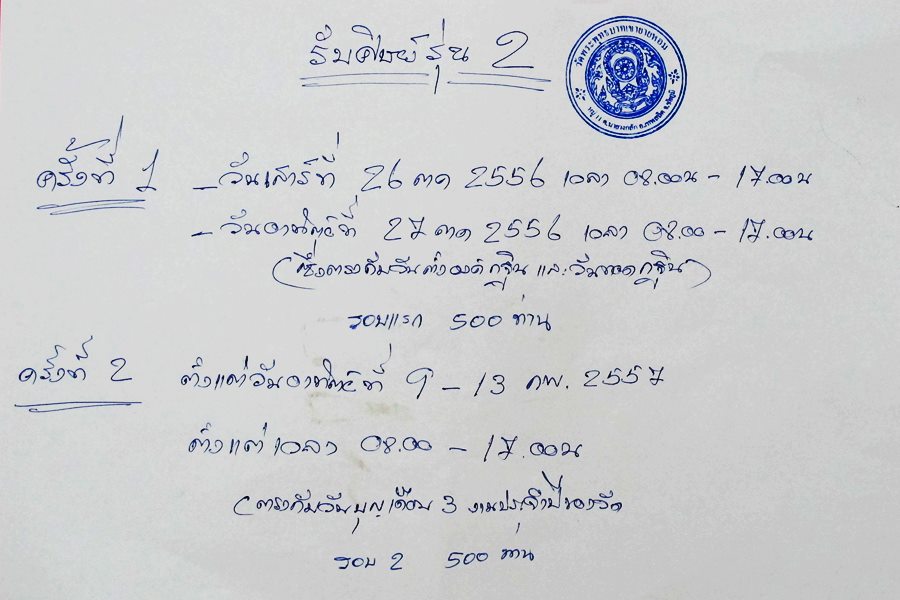 รับศิษย์รุ่น 2
วัดพระพุทธบาทเขายายหอม
ครั้งที่ 1 - วันเสาร์ที่ 26 ตค 2556 เวลา 08.00น - 17.00น
- วันอาทิตย์ที่ 27 ตค 2556 เวลา 08.00 - 17.00น
(ซึ่งตรงกับวันตั้งองค์กฐิน และวันทอดกฐิน)
รอบแรก 500 ท่าน
ครั้งที่ 2 ตั้งแต่วันอาทิตย์ที่ 9 - 13 กพ. 2557
ตั้งแต่เวลา 08.00 - 17.00น
(ตรงกับวันบุญเดือน 3 งานประจำปีของวัด
รอบ 2 500 ท่าน